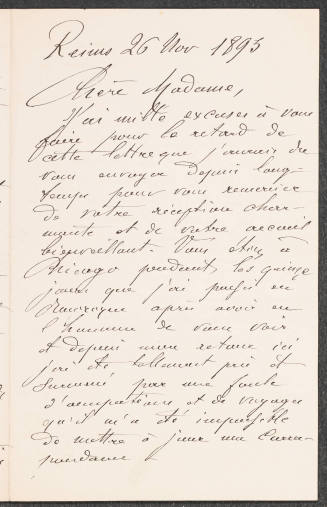 Reims 26 Nov 1893
Chère Madame,
J'ai mille excuses à vous
faire pour le retard de
cette lettre que j'aurais du
vous envoyer depuis long-
temps pour vous remercier
de votre réception char-
mante et de votre accueil
bienveillant. Vous étiez à
Chicago pendant les quinze
jours que j'ai passés en
Amérique après avoir eu
l'honneur de vous voir
et depuis mon retour ici
j'ai été tellement pris et
surmené par une foule
d'occupations et de voyages
qu'il m'a été impossible
de mettre à jour ma corres-
pondance